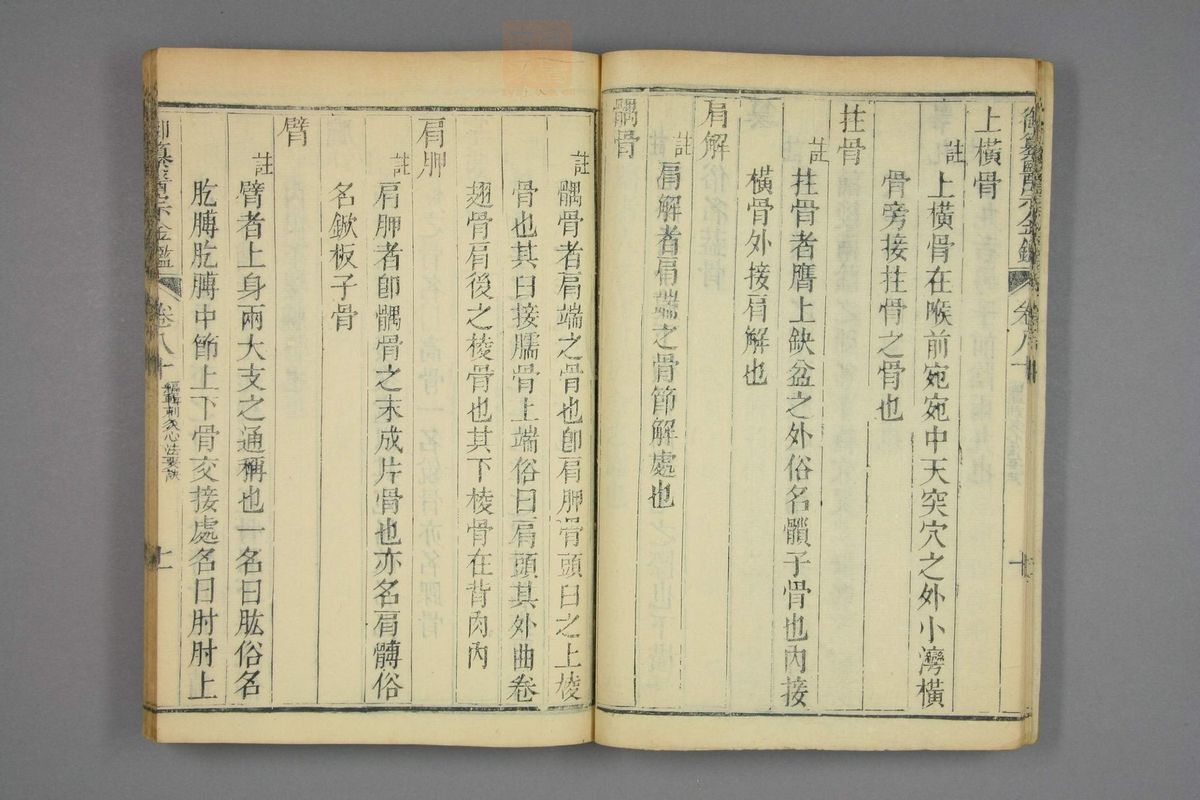 御纂醫宗金鑑 卷八十 十
上橫骨
註上橫骨在喉前宛宛中天突穴之外小灣橫
骨旁接拄骨之骨也
拄骨
註拄骨者膺上缺盆之外俗名鎖子骨也內接
橫骨外接肩解也
肩解
註肩解者肩端之骨節解處也
髃骨
註髃骨者肩端之骨也卽肩胛骨頭臼之上棱
骨也其臼接臑骨上端俗曰肩頭其外曲卷
翅骨肩後之棱骨也其下棱骨在背肉內
肩胛
註肩胛者卽髃骨之末成片骨也亦名肩髆俗
名鍁板子骨
臂
註臂者上身兩大支之通稱也一名曰肱俗名
肐膊肐膊中節上下骨交接處名曰肘肘上
御纂醫宗金鑑 卷八十 編輯刺灸心法要訣